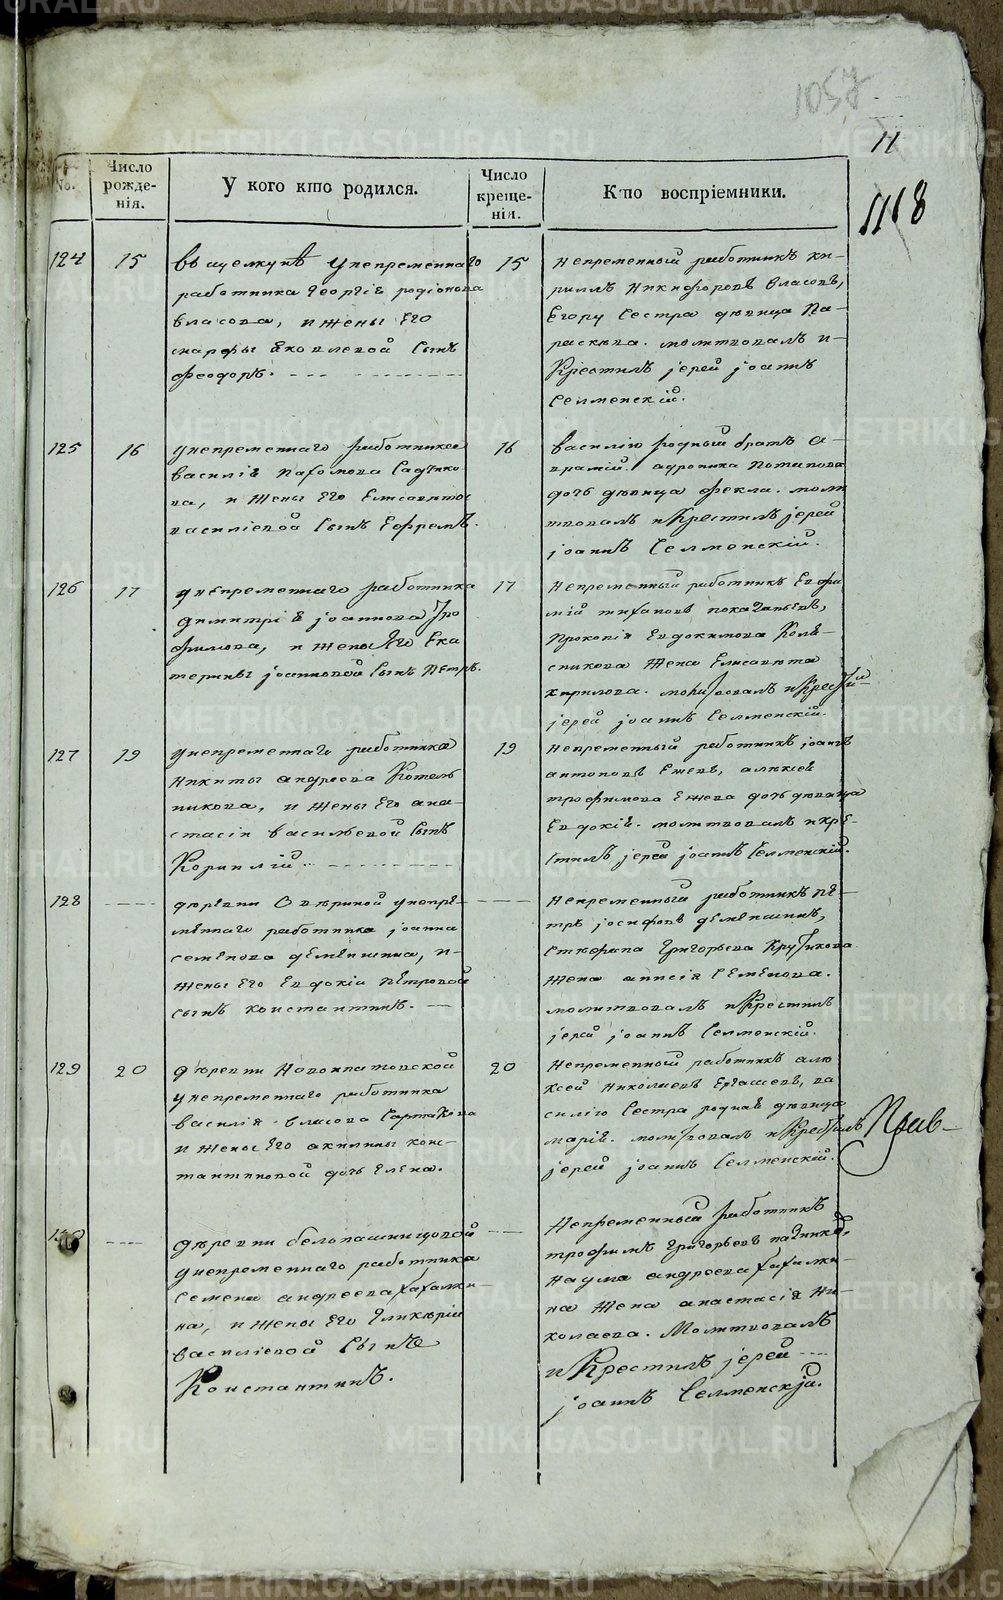 1057
11
1118
No.
Число рожде-нія.
У кого кто родился.
Число креще-нія.
Кто воспріемники.
124
15
въ щелкунѣ унепременнаго
работника Георгія родіонова
власова, и жены Его
марфы яковлевой Сынъ
феодоръ.
15
непременный работникъ ки-
риллъ никифоровъ власовъ,
Егору Сестра дѣвица Па-
раскева. молитвовалъ и
Крестилъ іерей іоаннъ
Селменскій.
125
16
унепременнаго работника
василія пахомова Садчико-
ва, и жены Его Елисаветы
василіевой Сынъ Ефремъ.
16
василію родный братъ а-
врамій. адроника потапова
дочь дѣвица фекла. моли
твовалъ и Крестилъ іерей
іоаннъ Селменскій.
126
17
унепременнаго работника
димитрія іоаннова Тро
фимова, и жены Его Ека
терины іоанновой Сынъ Петръ.
17
Непременный работникъ Евфи
мій тихановъ
Прокопія Евдокимова Коле-
сникова жена Елисавета
кирилова. молитвовалъ и Крестил
іерей іоаннъ Селменскій.
127
19
унепременнаго работника
Никиты андреева Котель
никова, и жены Его ана-
стасіи васильевой Сынъ
Корнилій
19
непременный работникъ іоаннъ
антоновъ Ежевъ, алексея
трофимова Ежева дочь дѣвица
Евдокія. молитвовалъ и кре-
стилъ іерей іоаннъ Селменскій.
128
деревни Аверинской унепре-
меннаго работника іоанна
семенова деменшина, и
жены Его Евдокіи петровой
сынъ константинъ.
Непременный работникъ пе-
тръ іосифовъ деменшинъ,
стефана Григорьева Крутикова
жена анисія Семенова.
молитвовалъ и Крестилъ
іерей іоаннъ Селменскій.
129
20
деревни Новоипатовской
унепременнаго работника
василія власова Сартакова
и жены Его акилины конс-
тантиновой дочь Елена.
20
Непременный работникъ але
ксей Николаевъ Ергашевъ, ва
силію Сестра родная дѣвица
марія. молитвовалъ и Крестилъ
іерей іоаннъ Селменскій.
Прав-
130
деревни
унепременнаго работника
Семена андреева хахалки-
на, и жены Его Гликеріи
василіевой Сынъ
Константинъ.
Непременный работникъ
трофимъ Григорьевъ
наума андреева хахалки-
на жена анастасія Ни-
колаева. Молитвовалъ
и Крестилъ іерей
іоаннъ Селменскій.
METRIKI.GASO-URAL.RU